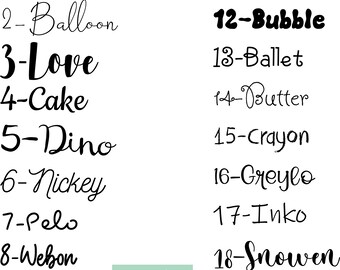 2-Balloon
3-Love
4-Cake
5-Dino
6-Nickey
7-Pelo
8-Webon
12-Bubble
13-Ballet
14-Butter
15-Crayon
16-Greylo
17-Inko
18-Snowen